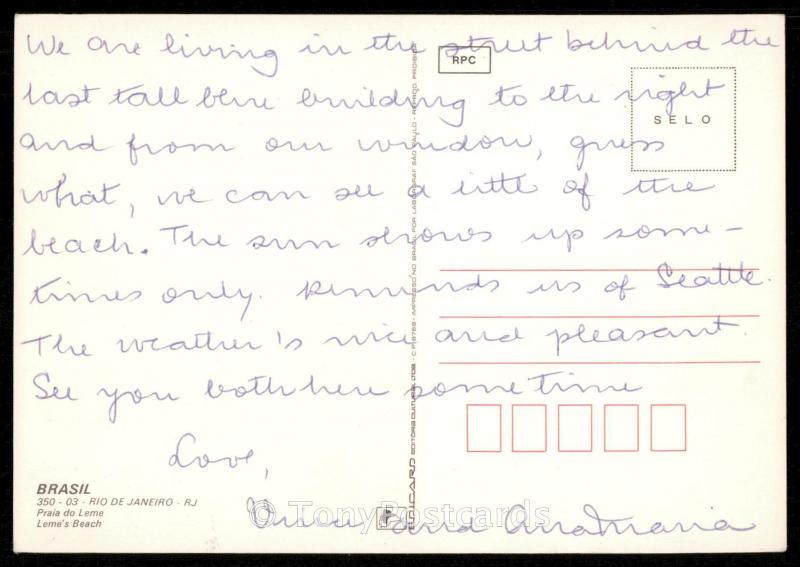 We are living in the street behind the
last tall blue building to the right
and from our window, guess
what, we can see a little of the
beach. The sun shows up some-
times only. Reminds us of Seattle.
The weather's nice and pleasant.
See you both here sometime
Love,
and AnaMaria
RPC
SELO
BRASIL
350 - 03 - RIO DE JANEIRO - RJ
Praia do Leme
Leme's Beach
EDICARD EDITORA CULTURAL LTDA - C.P. 8768 - IMPRESSO NO BRASIL POR LABORGRAF SÃO PAULO - REPROD. PROIBIDA
© TonyPostcards